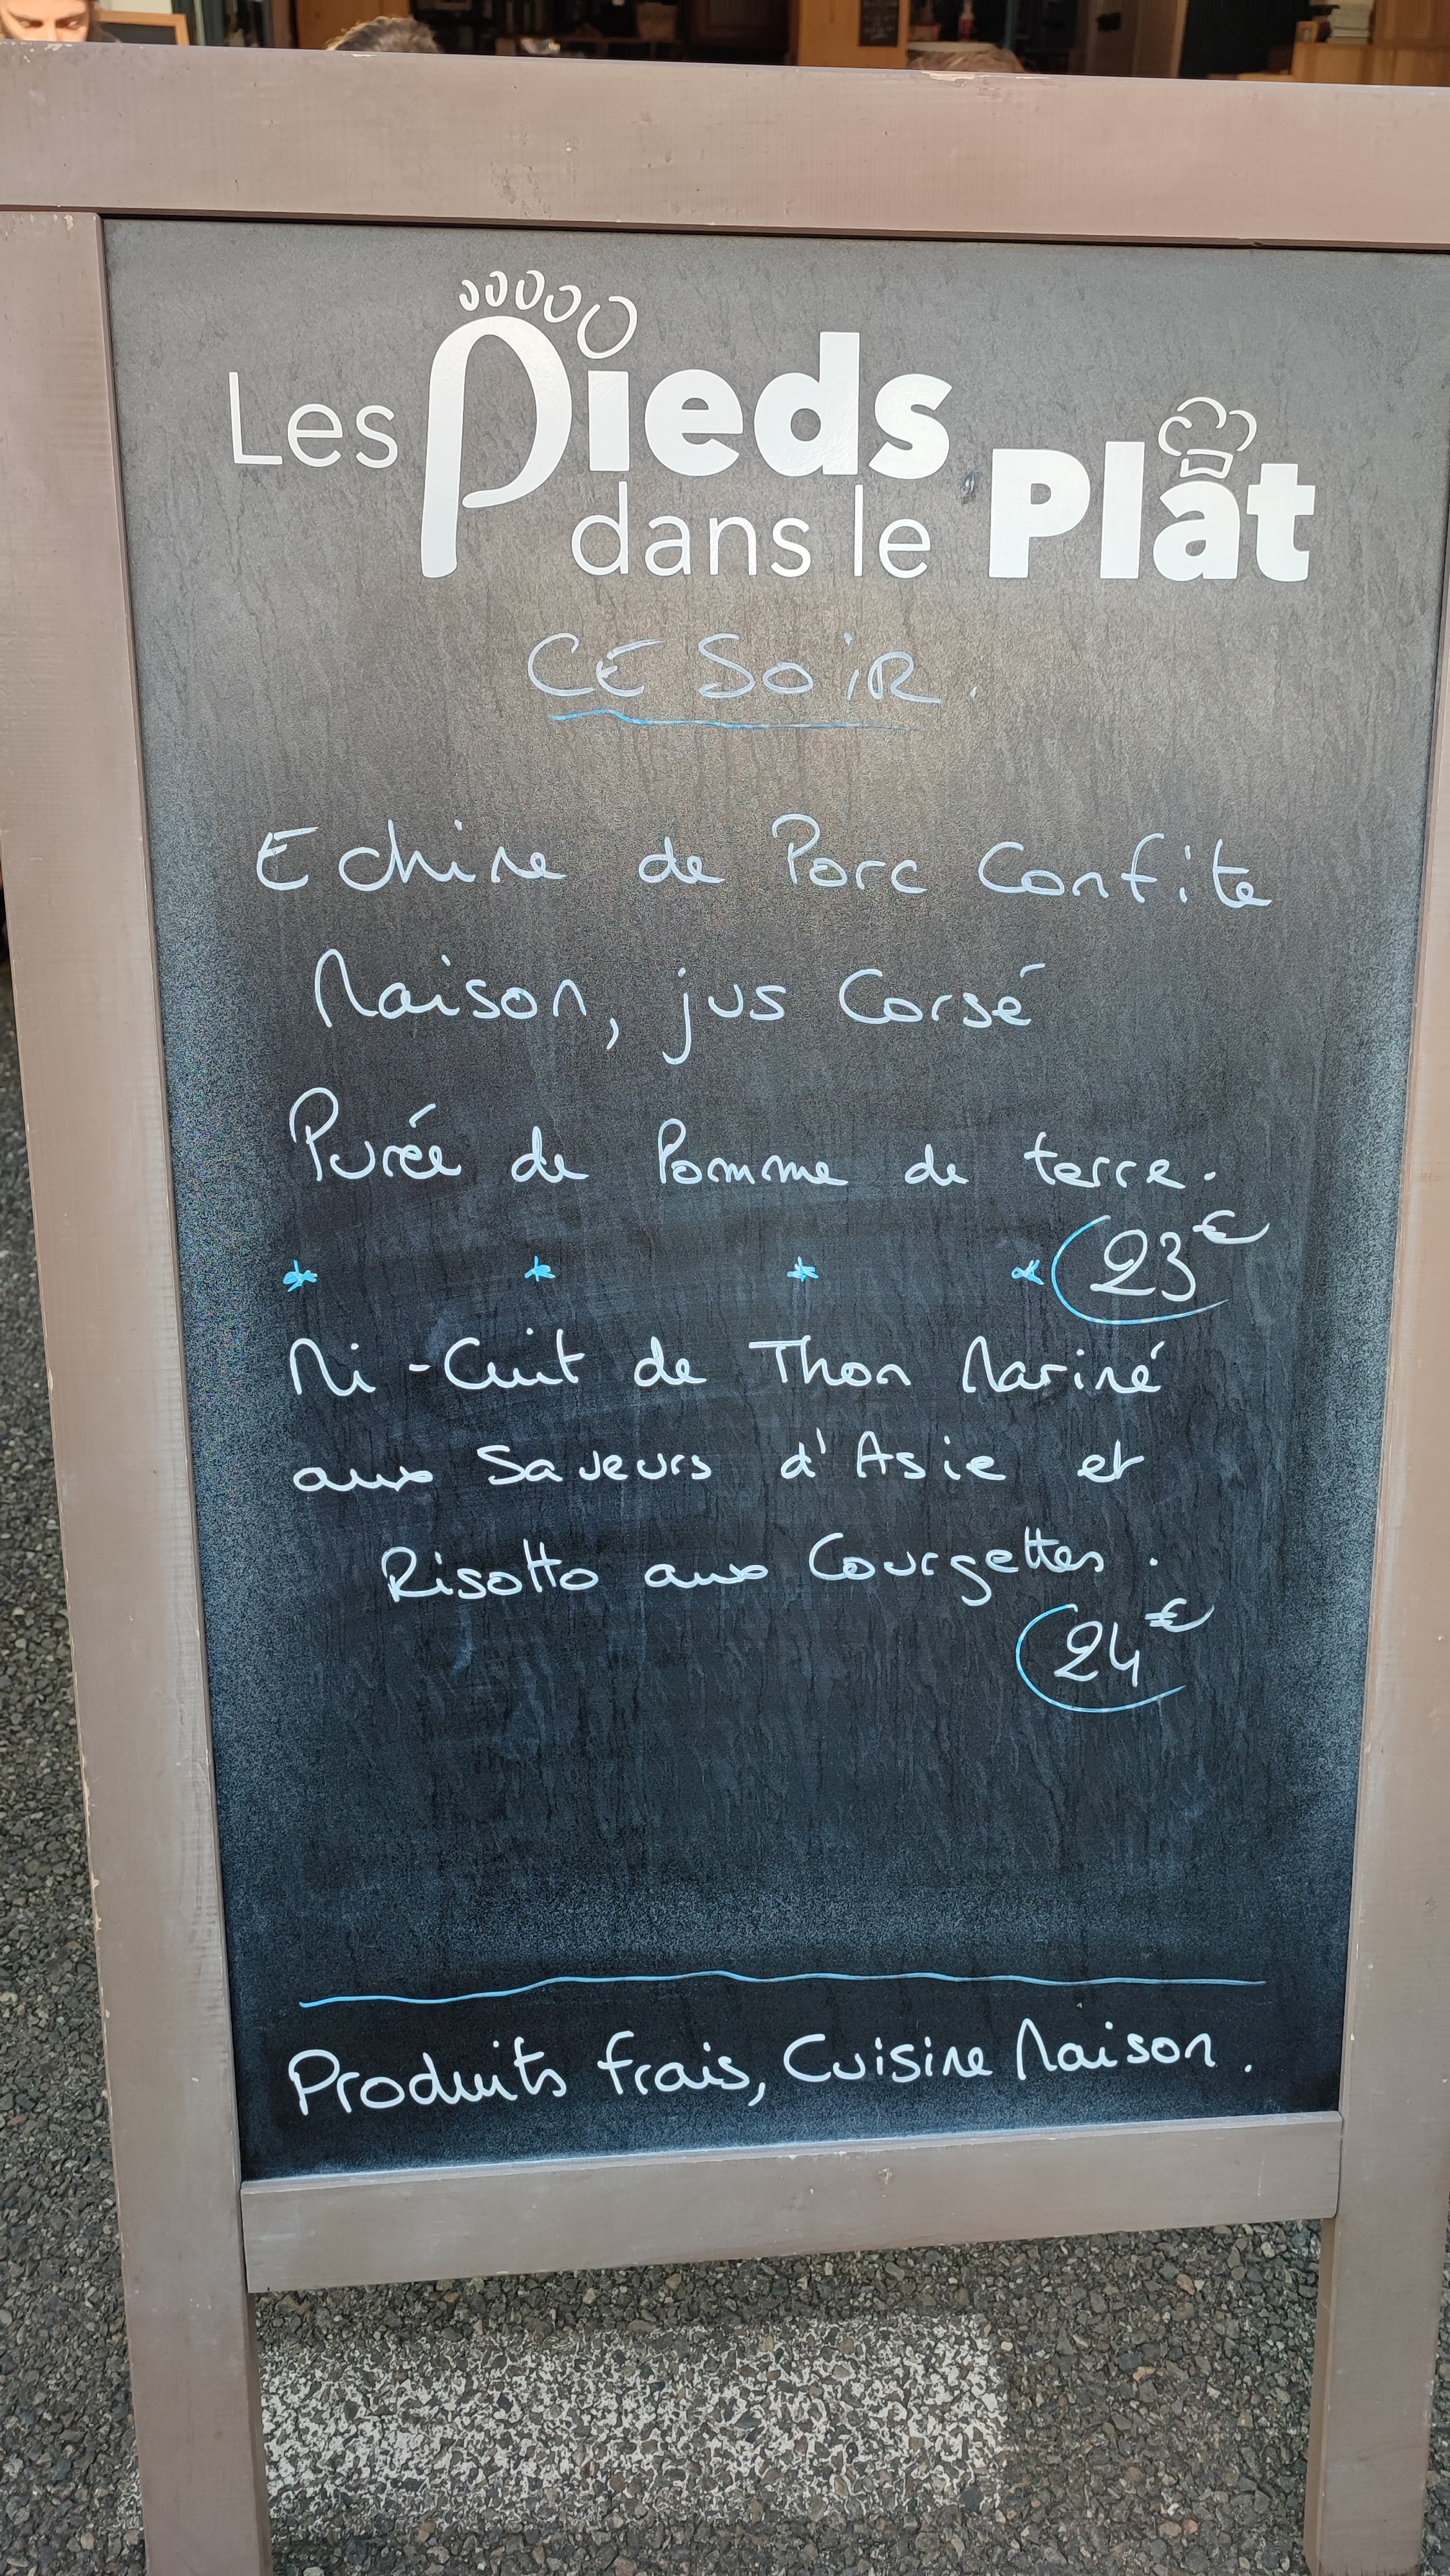 Les Pieds
dans le Plat
CE SOIR.
Echine de Porc Confite
Maison, jus Corsé
Purée de Pomme de terre.
* * * * 23€
Mi-Cuit de Thon Mariné
aux Saveurs d'Asie et
Risotto aux Courgettes.
24€
Produits frais, Cuisine Maison.